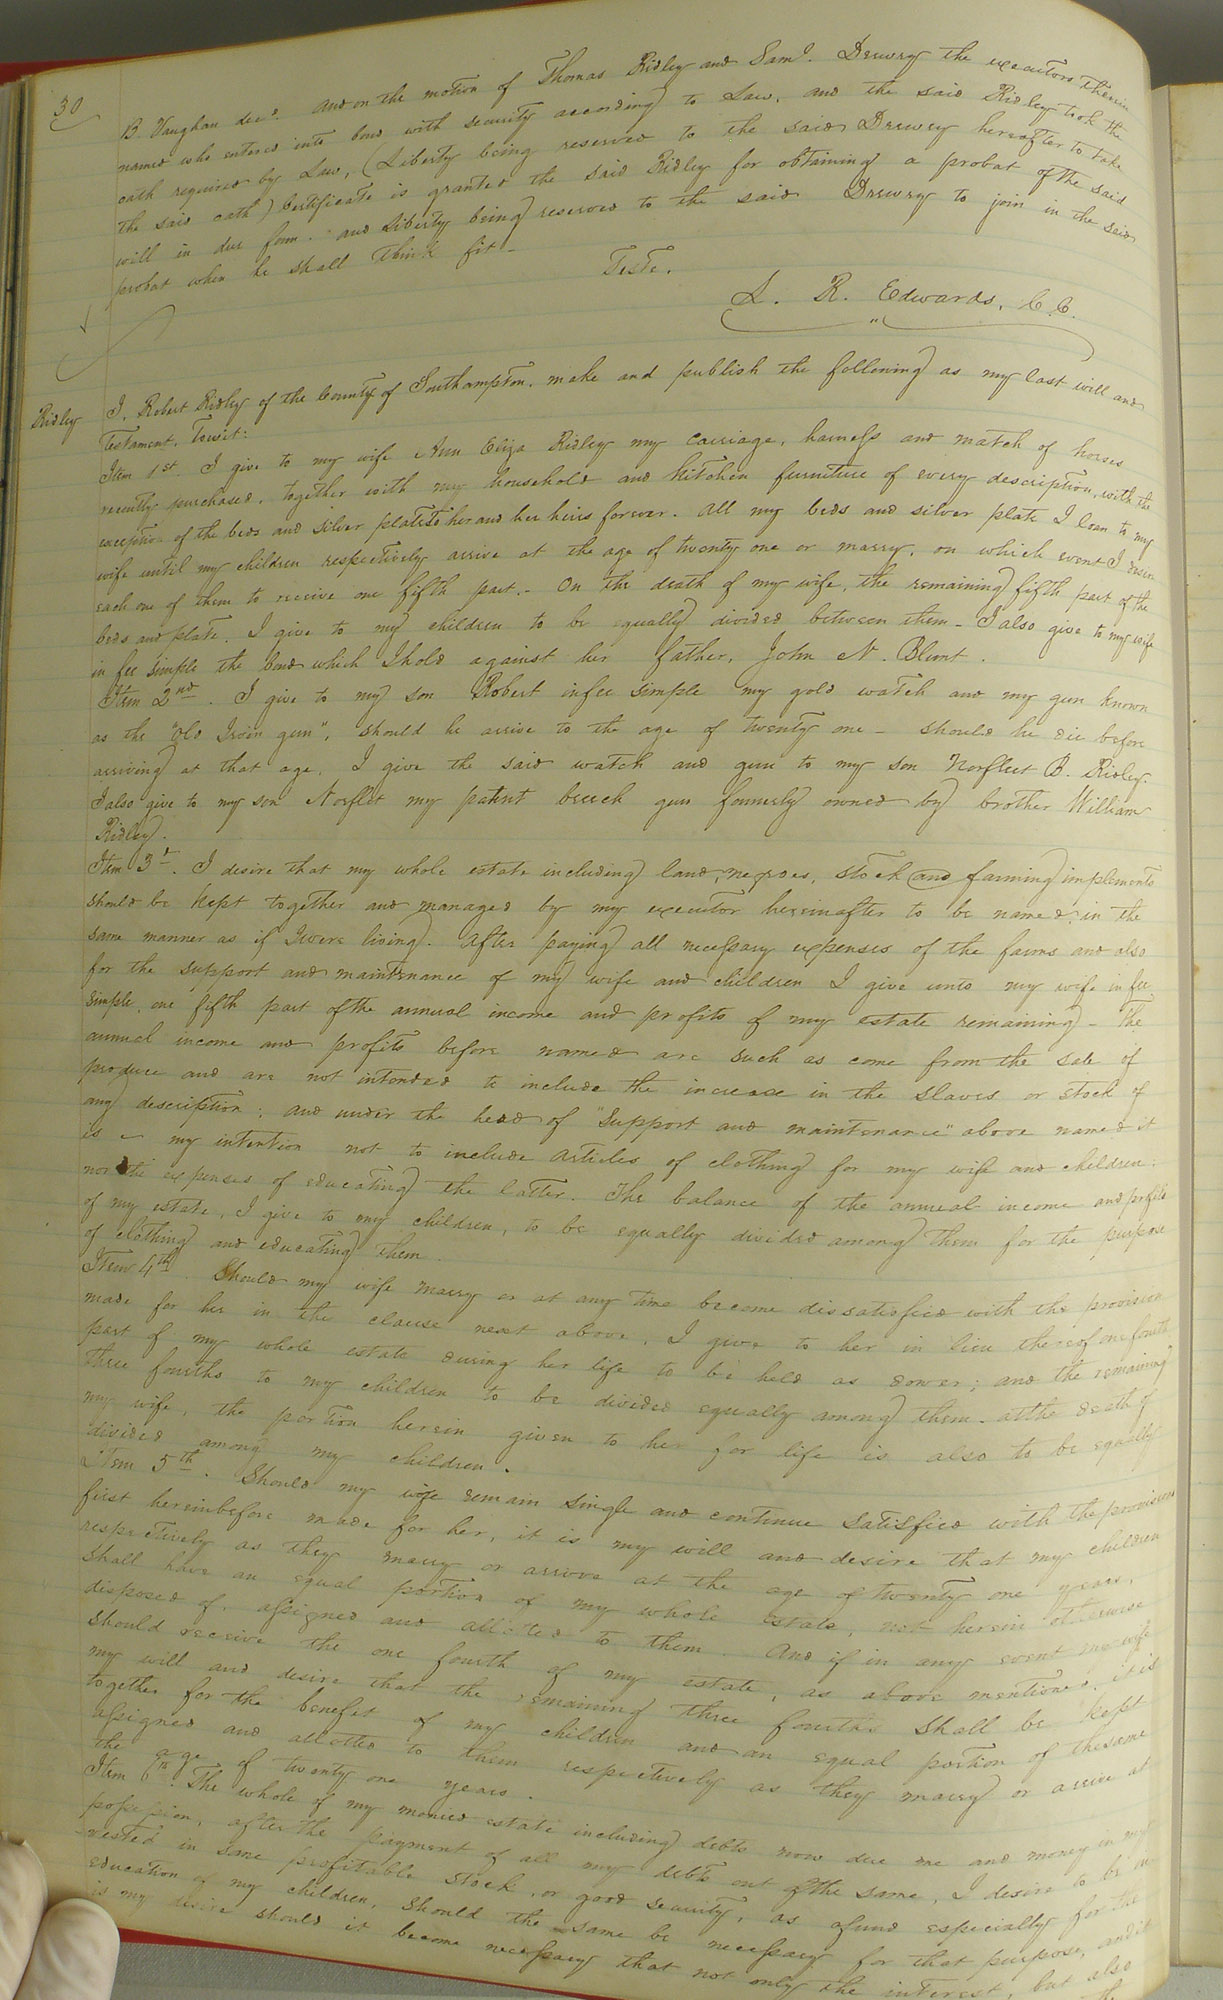 30
B Vaughan decd. and on the motion of Thomas Ridley and Saml. Drewry the executors therein
named who entered into bond with security according to Law, and the said Ridley took the
oath required by Law, (Liberty being reserved to the said Drewry hereafter to take
the said oath) Certificate is granted the said Ridley for obtaining a probat of the said
will in due form. and liberty being reserved to the said Drewry to join in the said
probat when he shall think fit -
Teste.
L. R. Edwards, C.C.
Ridley
I, Robert Ridley of the County of Southampton, make and publish the following as my last will and
Testament, Towit:
Item 1st. I give to my wife Ann Eliza Ridley my carriage, harness and match of horses
recently purchased, together with my household and kitchen furniture of every description, with the
exception of the beds and silver plate to her and her heirs forever. All my beds and silver plate I loan to my
wife until my children respectively arrive at the age of twenty one or marry, on which event I desire
each one of them to receive one fifth part.- On the death of my wife, the remaining fifth part of the
beds and plate, I give to my children to be equally divided between them - I also give to my wife
in fee simple the bond which I hold against her father, John N. Blunt.
Item 2nd. I give to my son Robert in fee simple my gold watch and my gun known
as the "Old Irvin gun", should he arrive to the age of twenty one - should he die before
arriving at that age, I give the said watch and gun to my son Norfleet B. Ridley.
I also give to my son Norflet my patent breech gun formerly owned by brother William
Ridley.
Item 3d. I desire that my whole estate including land, negroes, stock and farming implements
should be kept together and managed by my executor hereinafter to be named, in the
same manner as if I were living. After paying all necessary expenses of the farms and also
for the support and maintenance of my wife and children I give unto my wife in fee
simple, one fifth part of the annual income and profits of my estate remaining - The
annual income and profits before named are such as come from the sale of
produce and are not intended to include the increase in the slaves or stock of
any description; and under the head of "Support and maintenance" above named it
is - my intention not to include articles of clothing for my wife and children:
nor the expenses of educating the latter. The balance of the annual income and profits
of my estate, I give to my children, to be equally divided among them for the purpose
of clothing and educating them.
Item 4th. Should my wife marry or at any time become dissatisfied with the provision
made for her in the clause next above, I give to her in lieu thereof one fourth
part of my whole estate during her life to be held as dower; and the remaining
three fourths to my children to be divided equally among them. at the death of
my wife, the portion herein given to her for life is also to be equally
divided among my children.
Item 5th. Should my wife remain single and continue satisfied with the provisions
first hereinbefore made for her, it is my will and desire that my children
respectively as they marry or arrive at the age of twenty one years,
shall have an equal portion of my whole estate, not herein otherwise
disposed of, assigned and allotted to them. And if in any event my wife
should receive the one fourth of my estate, as above mentioned, it is
my will and desire that the remaining three fourths shall be kept
together for the benefit of my children and an equal portion of the same
assigned and allotted to them respectively as they marry or arrive at
the age of twenty one years.
Item 6th. The whole of my monied estate including debts now due me and money in my
possession, after the payment of all my debts out of the same, I desire to be in
vested in some profitable stock, or good security, as a fund especially for the
education of my children, should the same be necessary for that purpose, and it
is my desire should it become necessary that not only the interest, but also
the